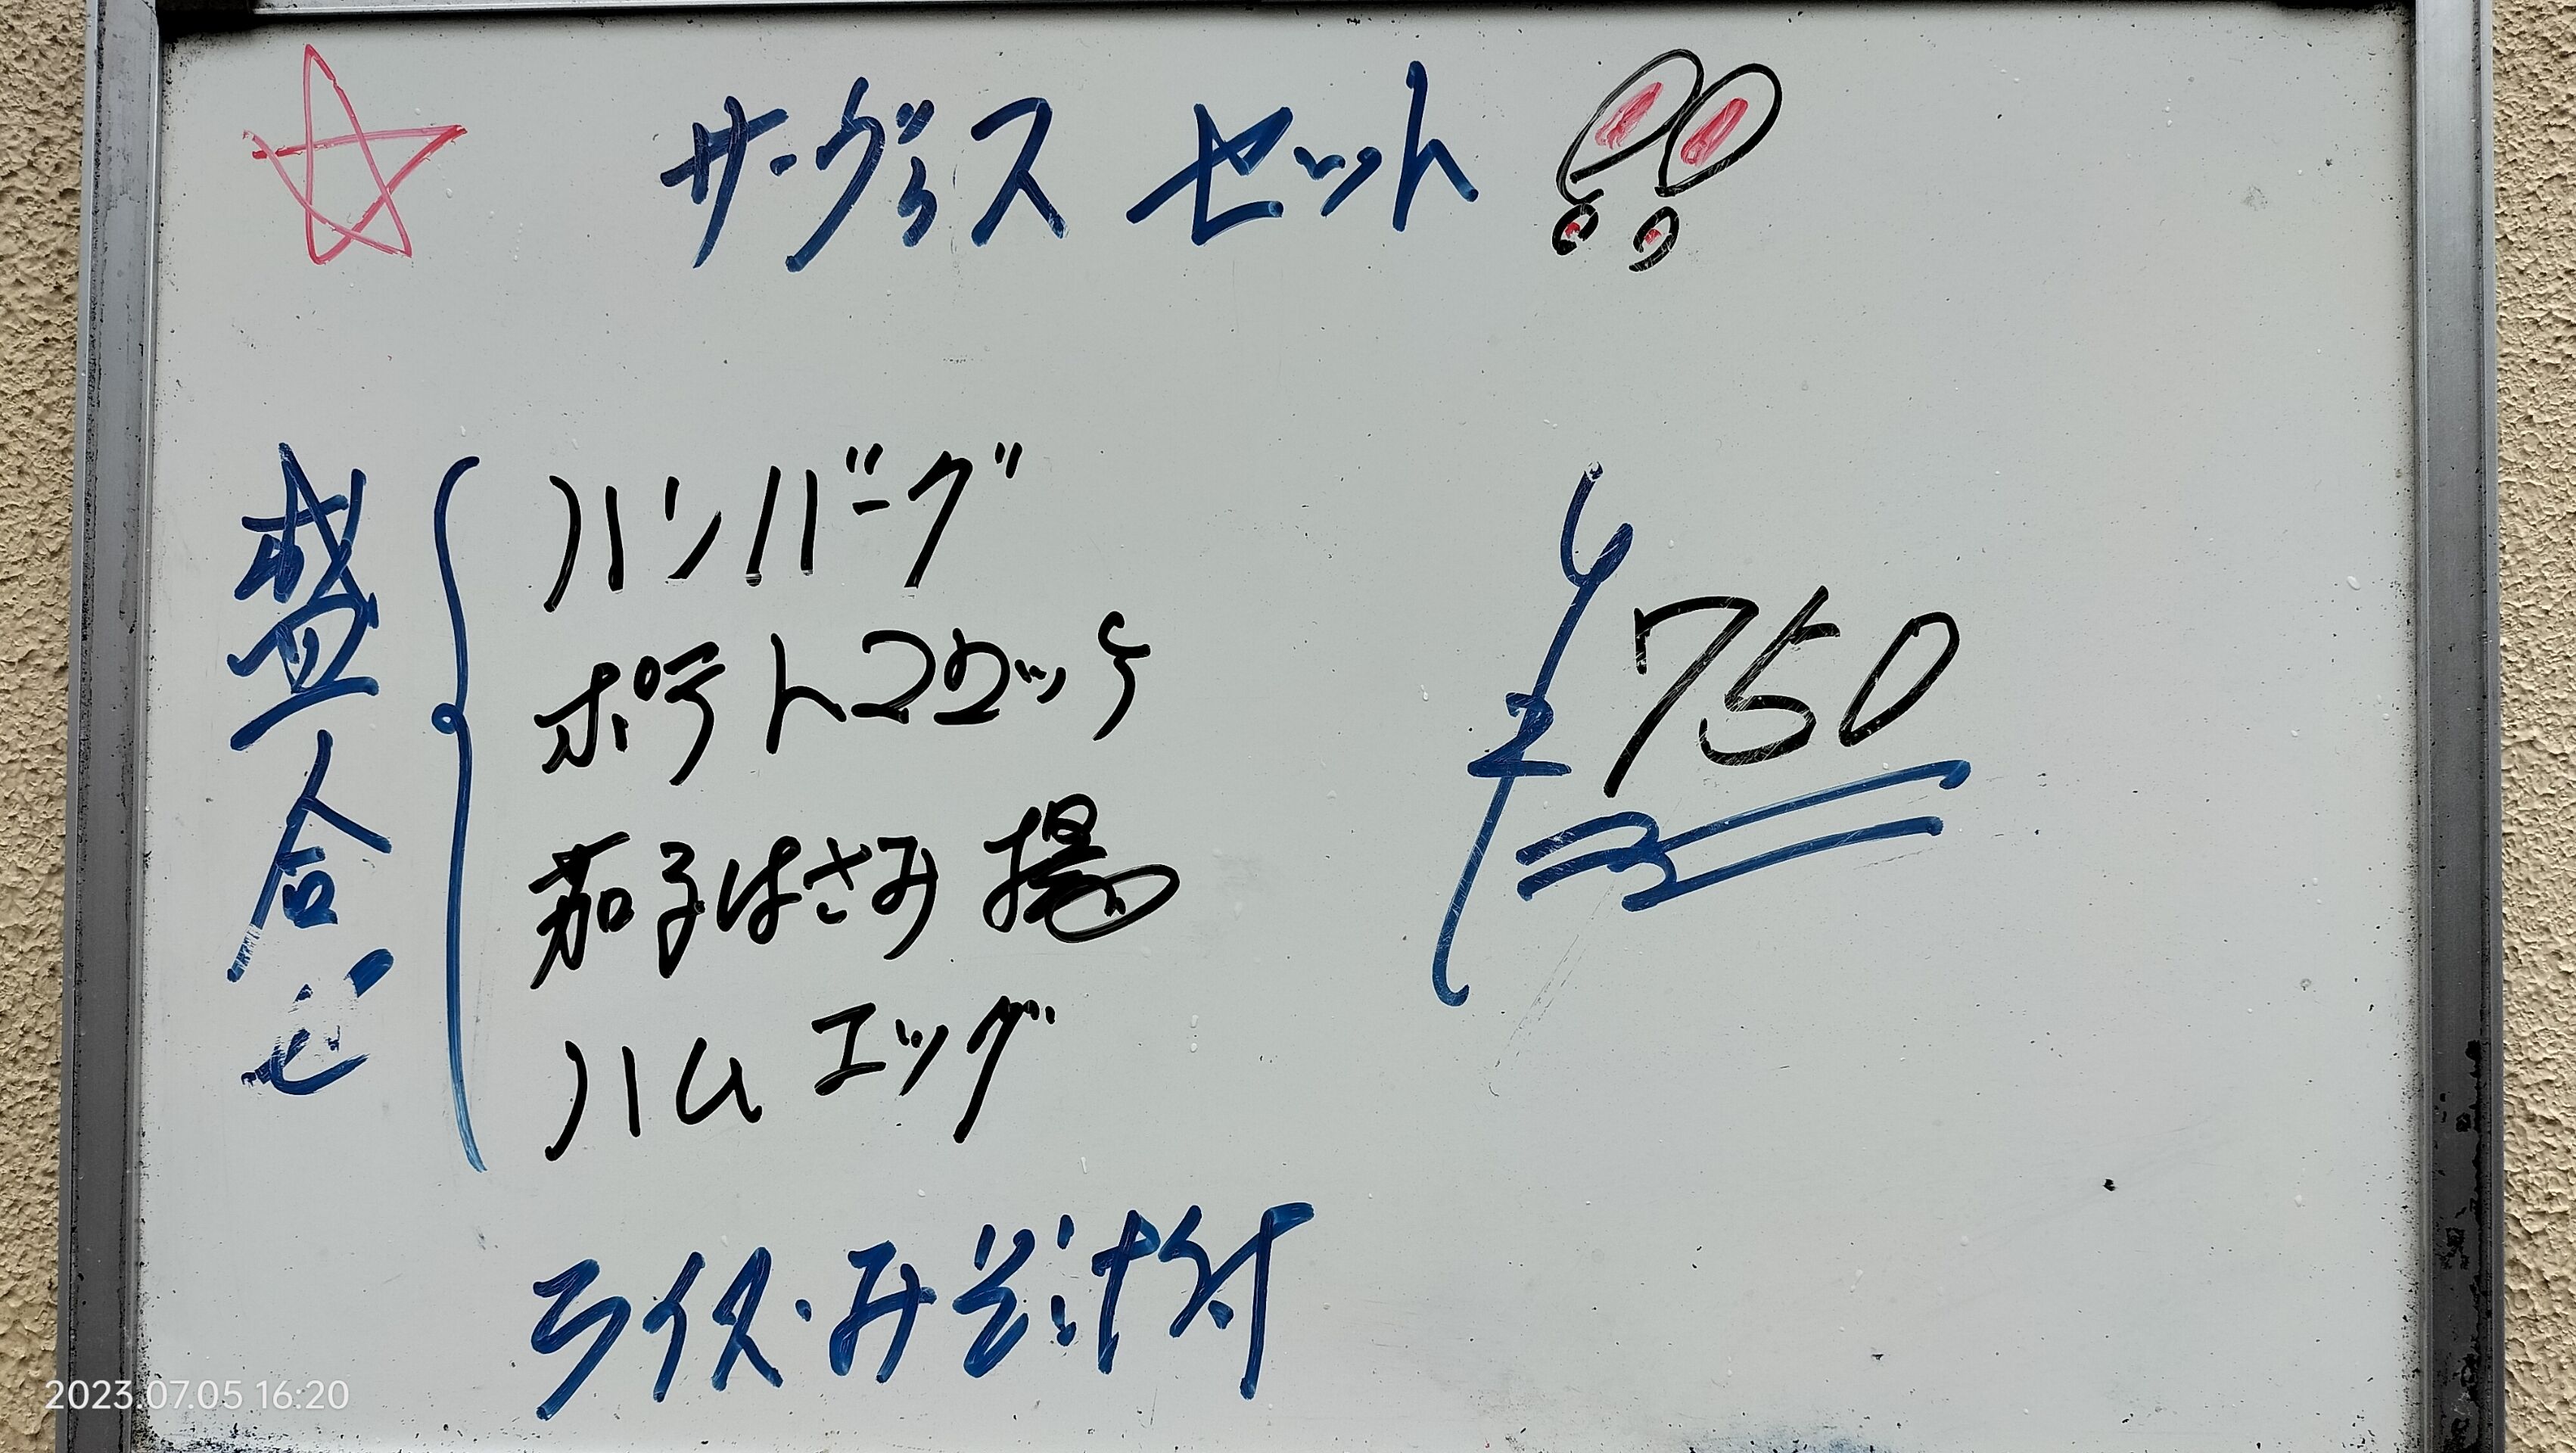 サーヴィス セット!!
盛合せ
ハンバーグ
ポテトコロッケ
茄子はさみ揚
ハムエッグ
¥750
ライス・みそ汁付
2023.07.05 16:20